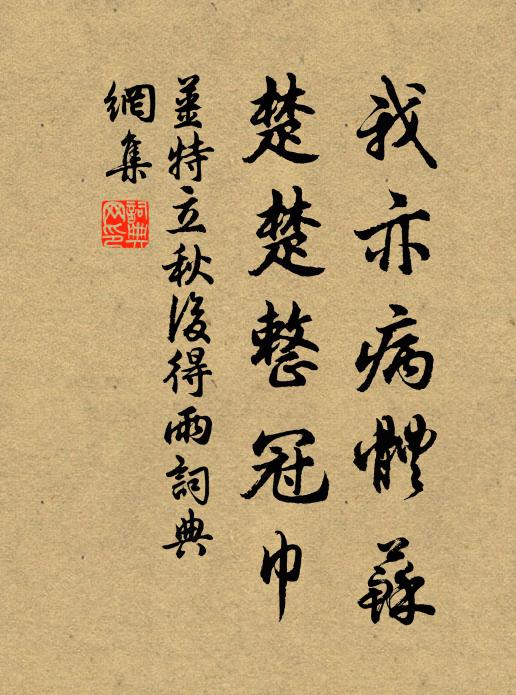 我亦病體蘇
楚楚整冠巾
姜特立秋後得雨詞典
網集
詞典
网印